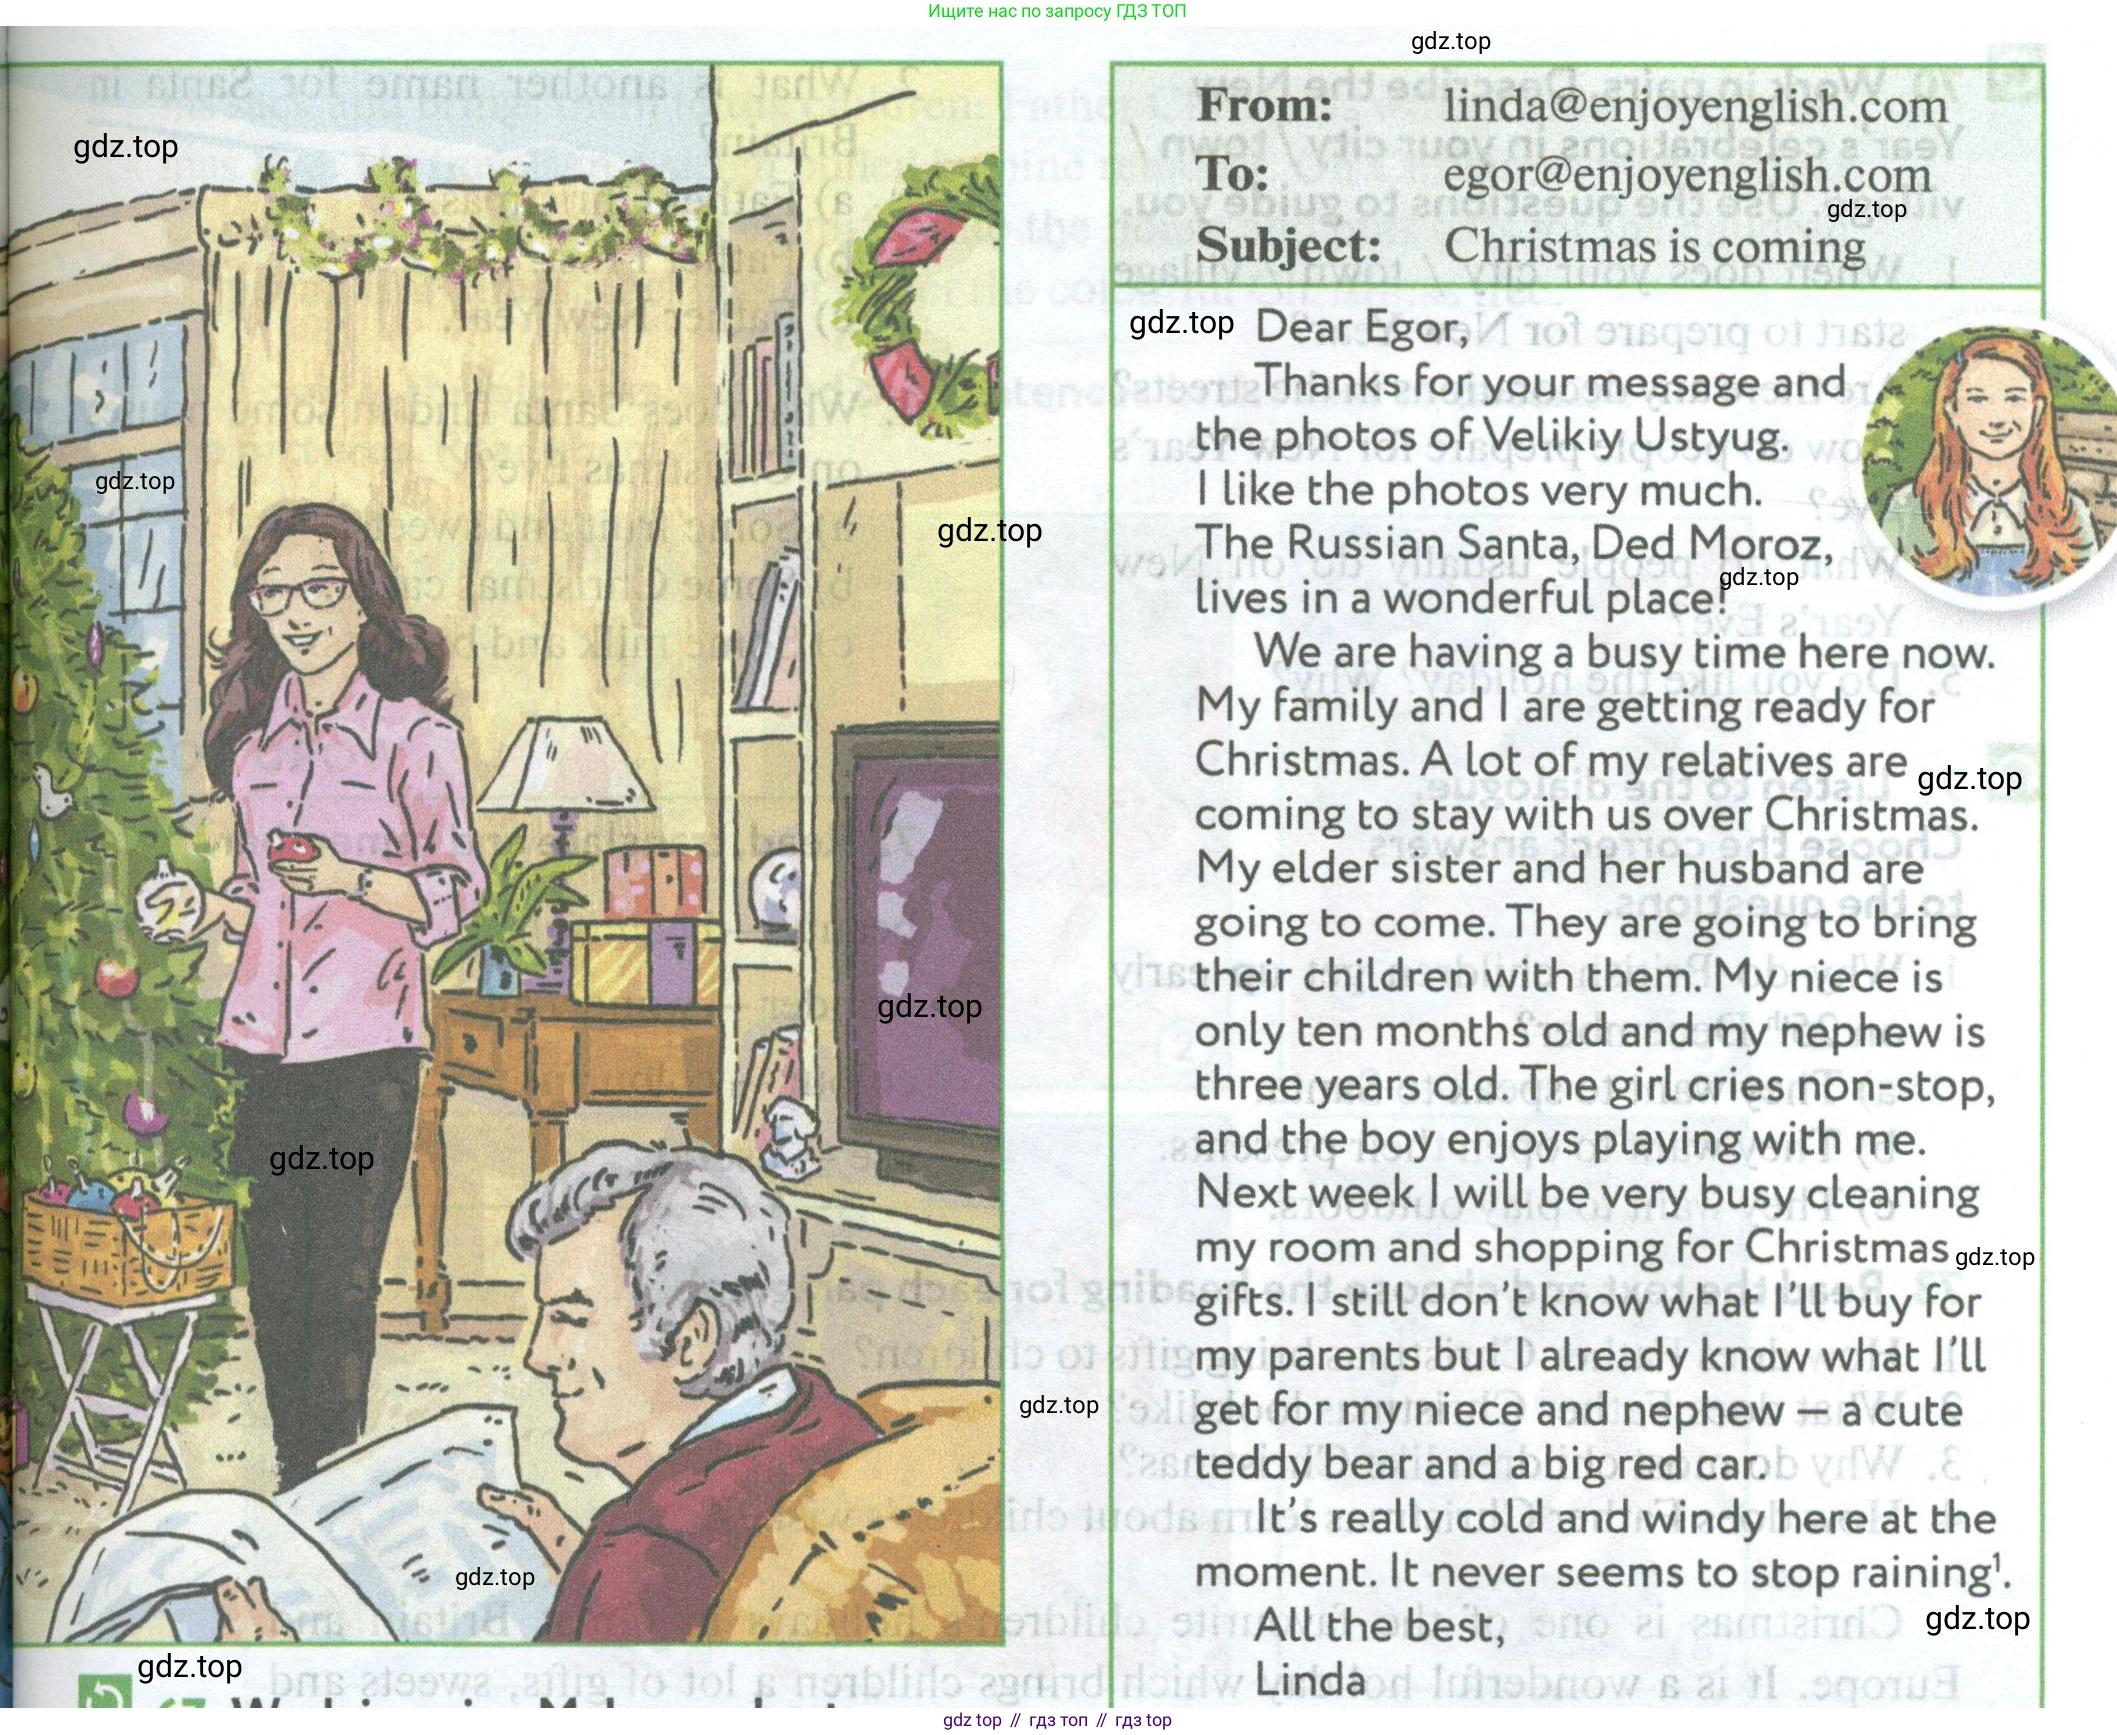 Ищите нас по запросу ГДЗ ТОП
gdz.top
From: linda@enjoyenglish.com
To: egor@enjoyenglish.com
gdz.top
Subject: Christmas is coming
gdz.top
gdz.top
Dear Egor,
Thanks for your message and
the photos of Velikiy Ustyug.
I like the photos very much.
gdz.top
gdz.top
The Russian Santa, Ded Moroz,
gdz.top
lives in a wonderful place!
We are having a busy time here now.
My family and I are getting ready for
Christmas. A lot of my relatives are
gdz.top
coming to stay with us over Christmas.
My elder sister and her husband are
going to come. They are going to bring
their children with them. My niece is
gdz.top
only ten months old and my nephew is
three years old. The girl cries non-stop,
and the boy enjoys playing with me.
gdz.top
Next week I will be very busy cleaning
my room and shopping for Christmas
gdz.top
gifts. I still don't know what I'll buy for
my parents but I already know what I'll
gdz.top
get for my niece and nephew — a cute
teddy bear and a big red car.
It's really cold and windy here at the
moment. It never seems to stop raining¹.
gdz.top
gdz.top
All the best,
Linda
gdz.top
gdz top // гдз топ // гдз top